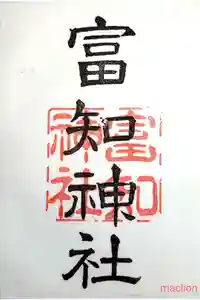 富知神社
富知
神社
maclion